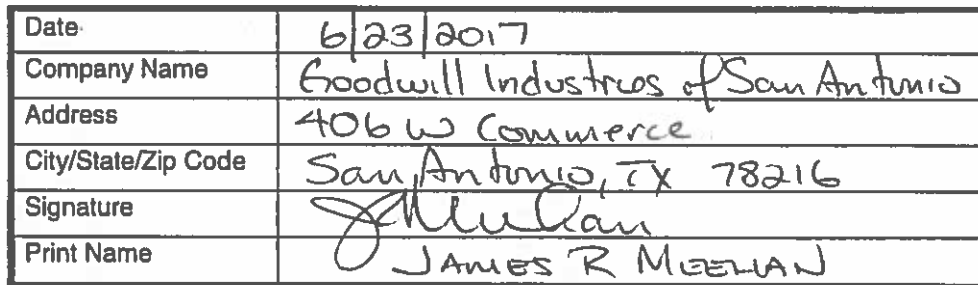 Date 6/23/2017
Company Name Goodwill Industries of San Antonio
Address 406 W Commerce
City/State/Zip Code San Antonio, TX 78216
Signature JMeehan
Print Name JAMES R MEEHAN